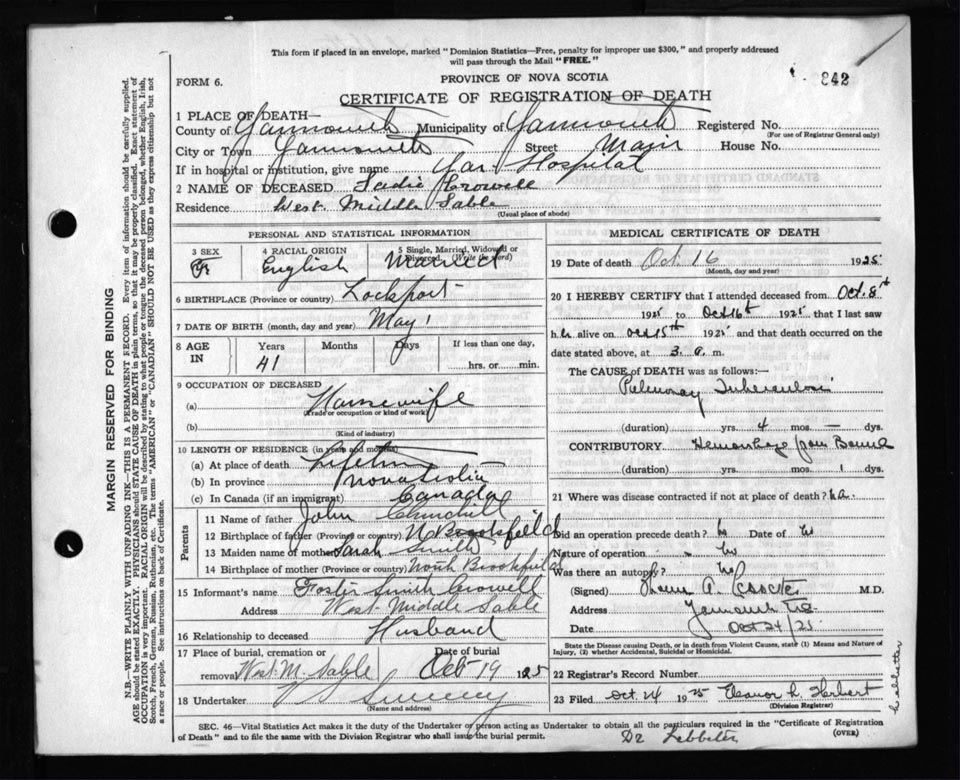 This form if placed in an envelope, marked "Dominion Statistics—Free, penalty for improper use $300," and properly addressed
will pass through the Mail "FREE."
FORM 6.
PROVINCE OF NOVA SCOTIA
842
CERTIFICATE OF REGISTRATION OF DEATH
1 PLACE OF DEATH—
County of Yarmouth Municipality of Yarmouth Registered No.
(For use of Registrar General only)
City or Town Yarmouth Street Main House No.
If in hospital or institution, give name Yar Hospital
2 NAME OF DECEASED Sadie Crowell
Residence West Middle Sable
(Usual place of abode)
PERSONAL AND STATISTICAL INFORMATION
3 SEX F
4 RACIAL ORIGIN English
5 Single, Married, Widowed or Divorced (Write the word) Married
6 BIRTHPLACE (Province or country) Lockport
7 DATE OF BIRTH (month, day and year) May 1
8 AGE IN
Years 41
Months
Days
If less than one day,
hrs. or min.
9 OCCUPATION OF DECEASED
(a) Housewife
(Trade or occupation or kind of work)
(b)
(Kind of industry)
10 LENGTH OF RESIDENCE (in years and months)
(a) At place of death Lifetime
(b) In province Nova Scotia
(c) In Canada (if an immigrant) Canada
Parents
11 Name of father John Churchill
12 Birthplace of father (Province or country) N Brookfield
13 Maiden name of mother Sarah Smith
14 Birthplace of mother (Province or country) North Brookfield
15 Informant's name Foster Smith Crowell
Address West Middle Sable
16 Relationship to deceased Husband
17 Place of burial, cremation or removal West M. Sable
Date of burial Oct 19 1925
18 Undertaker V Sweeny
(Name and address)
MEDICAL CERTIFICATE OF DEATH
19 Date of death Oct. 16 1925
(Month, day and year)
20 I HEREBY CERTIFY that I attended deceased from Oct. 8th
1925 to Oct 16th 1925 that I last saw
her alive on Oct 15th 1925 and that death occurred on
date stated above, at 3. a. m.
The CAUSE of DEATH was as follows:—
Pulmonary Tuberculosis
(duration) yrs. 4 mos. — dys.
CONTRIBUTORY Hemorrhage from Bowel
(duration) yrs. mos. 1 dys.
21 Where was disease contracted if not at place of death?
Did an operation precede death? No Date of No
Nature of operation No
Was there an autopsy? No
(Signed) M.D.
Address Yarmouth N.S.
Date Oct 24/25
State the Disease causing Death, or in death from Violent Causes, state (1) Means and Nature of
Injury, (2) whether Accidental, Suicidal or Homicidal.
22 Registrar's Record Number
23 Filed Oct. 24 1925 Eleanor L. Herbert
(Division Registrar)
SEC. 46—Vital Statistics Act makes it the duty of the Undertaker or person acting as Undertaker to obtain all the particulars required in the "Certificate of Registration
of Death" and to file the same with the Division Registrar who shall issue the burial permit.
(OVER)
Dr
MARGIN RESERVED FOR BINDING
N.B.—WRITE PLAINLY WITH UNFADING INK—THIS IS A PERMANENT RECORD. Every item of information should be carefully supplied.
AGE should be stated EXACTLY. PHYSICIANS should STATE CAUSE OF DEATH in plain terms, so that it may be properly classified. Exact statement of
OCCUPATION is very important. RACIAL ORIGIN will be described by stating to what people or tongue the deceased person belonged, whether English, Irish,
Scotch, French, German, Russian, Ruthenian, etc. The terms "AMERICAN" or "CANADIAN" SHOULD NOT BE USED as they express citizenship but not
a race or people. See instructions on back of Certificate.